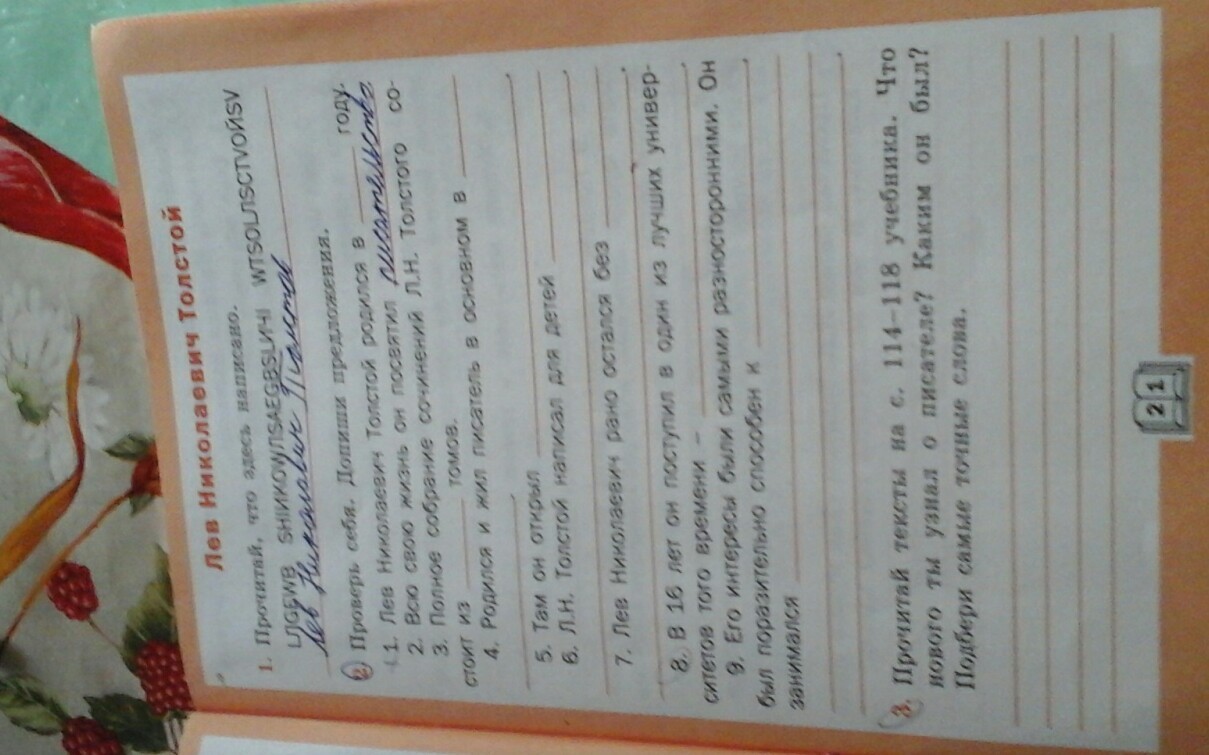 Лев Николаевич Толстой
1. Прочитай, что здесь написано.
LЛGEWB SНIИKOWЛSAEGBSLИЧI WTSOLЛSCTVOЙSV
Лев Николаевич Толстой
2. Проверь себя. Допиши предложения.
1. Лев Николаевич Толстой родился в году.
2. Всю свою жизнь он посвятил писательству
3. Полное собрание сочинений Л.Н. Толстого со-
стоит из томов.
4. Родился и жил писатель в основном в
.
5. Там он открыл .
6. Л.Н. Толстой написал для детей .
7. Лев Николаевич рано остался без .
8. В 16 лет он поступил в один из лучших универ-
ситетов того времени – .
9. Его интересы были самыми разносторонними. Он
был поразительно способен к .
занимался
.
3. Прочитай тексты на с. 114–118 учебника. Что
нового ты узнал о писателе? Каким он был?
Подбери самые точные слова.
21